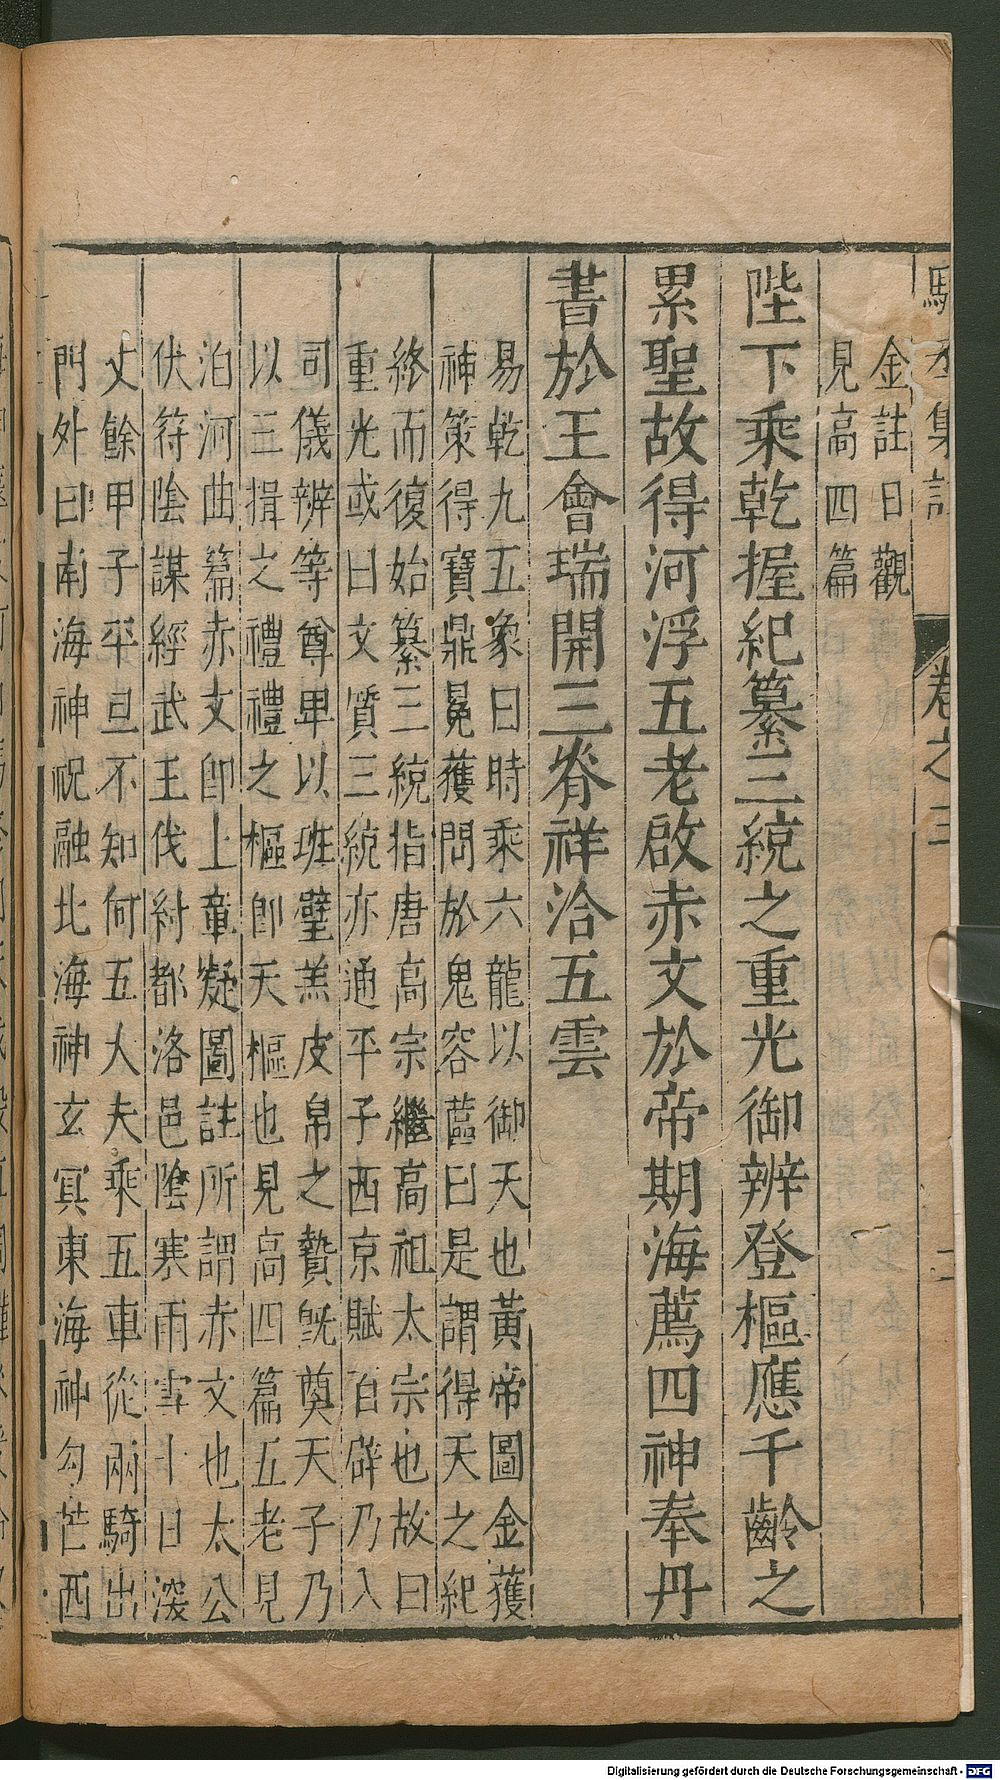 駱丞集註 卷之三 二
金註日觀
見高四篇
陛下乘乾握紀纂三統之重光御辨登樞應千齡之
累聖故得河浮五老啟赤文於帝期海薦四神奉丹
書於王會瑞開三脊祥洽五雲
易乾九五象曰時乘六龍以御天也黃帝圖金獲
神策得寶鼎冕獲問於鬼容蓲曰是謂得天之紀
終而復始纂三統指唐高宗繼高祖太宗也故曰
重光或曰文質三統亦通平子西京賦百辟乃入
司儀辨等尊卑以班璧羔皮帛之贄旣奠天子乃
以三揖之禮禮之樞卽天樞也見高四篇五老見
泊河曲篇赤文卽上章凝圖註所謂赤文也太公
伏符陰謀經武王伐紂都洛邑陰寒雨雪十日深
丈餘甲子平旦不知何五大夫乘五車從兩騎出
門外曰南海神祝融北海神玄冥東海神勾芒西
Digitalisierung gefördert durch die Deutsche Forschungsgemeinschaft - DFG